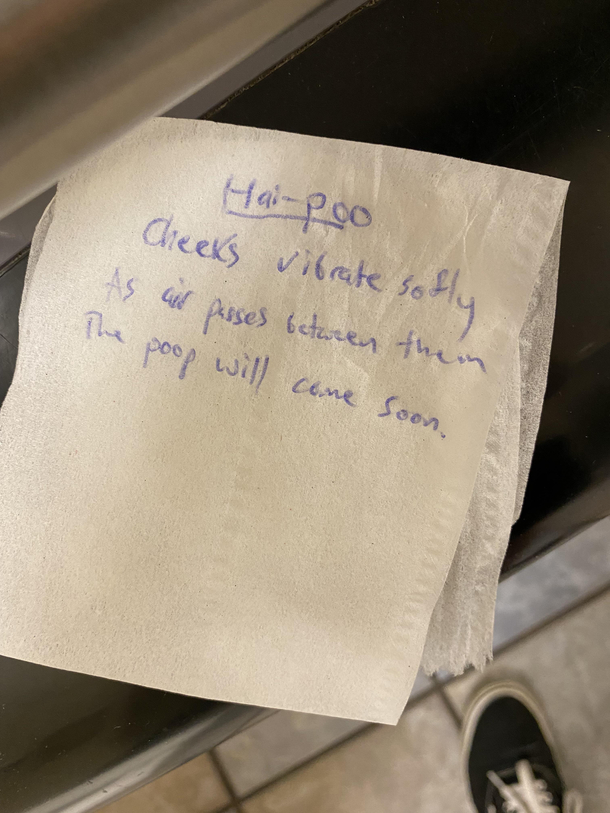 Hai-poo
Cheeks vibrate softly
As air passes between them
The poop will come soon.